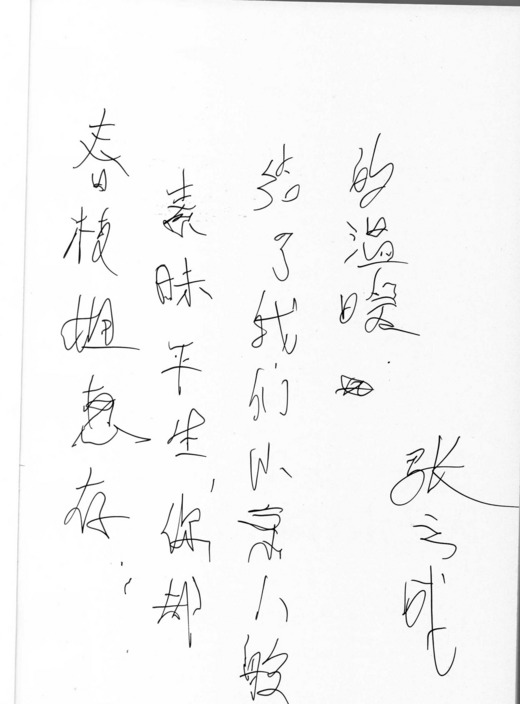 春枝姐惠存：
素昧平生，你却
给了我们以家人般
的温暖．
张云成